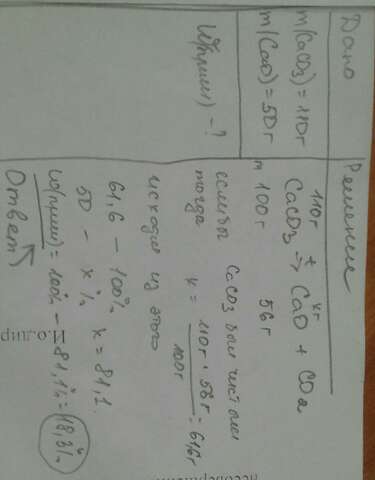 Дано
m(CaCO3) = 110г
m(CaO) = 50г
W(прим) - ?
Решение
110г xг
CaCO3 t→ CaO + CO2
m 100г 56г
если бы CaCO3 был чистым
тогда x = 110г · 56г / 100г = 61,6г
исходя из этого
61,6 - 100%
50 - x% x = 81,1.
ω(прим) = 100% - 81,1% = 18,8%
Ответ